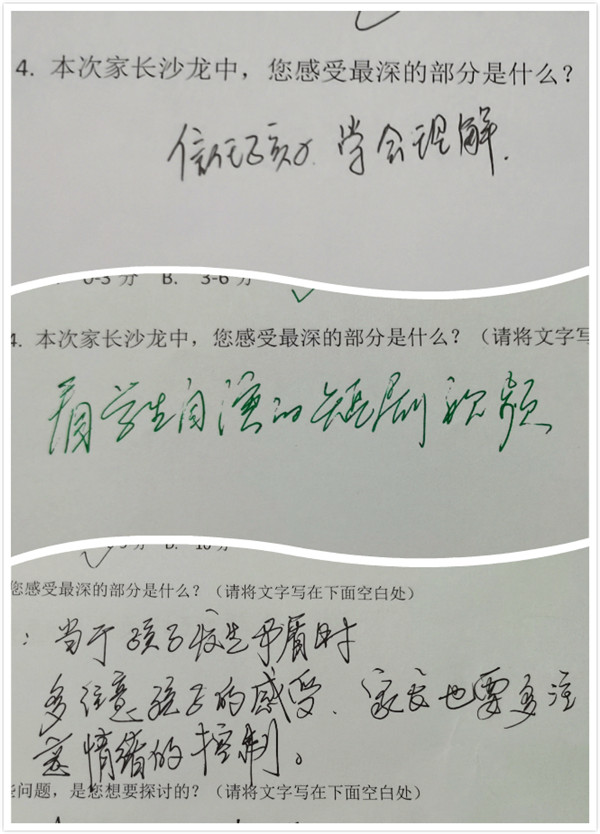 4. 本次家长沙龙中，您感受最深的部分是什么？
信任孩子. 学会理解.
0-3 分 B. 3-6 分
4. 本次家长沙龙中，您感受最深的部分是什么？（请将文字写
看学生自演的短剧视频
您感受最深的部分是什么？（请将文字写在下面空白处）
：当于孩子发生矛盾时
多注意孩子的感受、家长也要多注
意情绪的控制。
些问题，是您想要探讨的？（请将文字写在下面空白处）